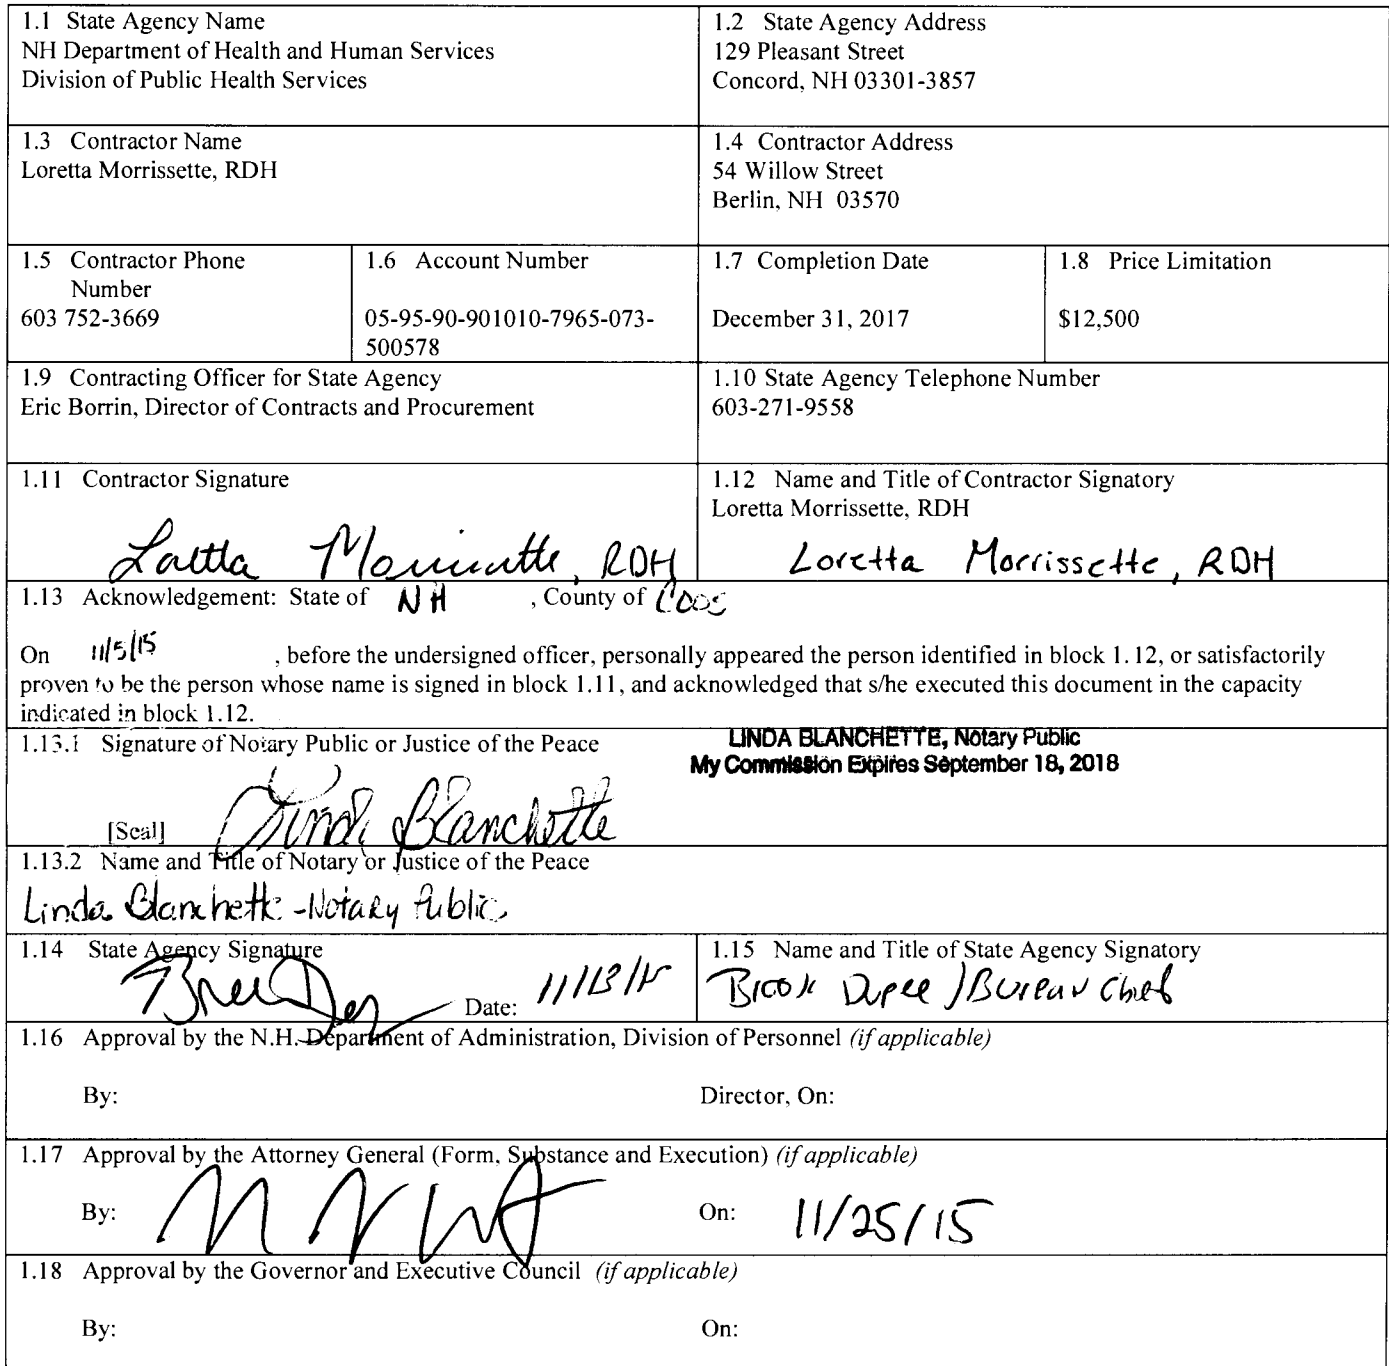 1.1 State Agency Name
NH Department of Health and Human Services
Division of Public Health Services
1.2 State Agency Address
129 Pleasant Street
Concord, NH 03301-3857
1.3 Contractor Name
Loretta Morrissette, RDH
1.4 Contractor Address
54 Willow Street
Berlin, NH 03570
1.5 Contractor Phone
Number
603 752-3669
1.6 Account Number
05-95-90-901010-7965-073-
500578
1.7 Completion Date
December 31, 2017
1.8 Price Limitation
$12,500
1.9 Contracting Officer for State Agency
Eric Borrin, Director of Contracts and Procurement
1.10 State Agency Telephone Number
603-271-9558
1.11 Contractor Signature
Loretta Morrissette, RDH
1.12 Name and Title of Contractor Signatory
Loretta Morrissette, RDH
Loretta Morrissette, RDH
1.13 Acknowledgement: State of NH , County of Coos
On 11/5/15 , before the undersigned officer, personally appeared the person identified in block 1.12, or satisfactorily
proven to be the person whose name is signed in block 1.11, and acknowledged that s/he executed this document in the capacity
indicated in block 1.12.
1.13.1 Signature of Notary Public or Justice of the Peace
LINDA BLANCHETTE, Notary Public
My Commission Expires September 18, 2018
[Seal] Linda Blanchette
1.13.2 Name and Title of Notary or Justice of the Peace
Linda Blanchette - Notary Public
1.14 State Agency Signature
Date: 11/13/15
1.15 Name and Title of State Agency Signatory
Brook Dupee / Bureau Chief
1.16 Approval by the N.H. Department of Administration, Division of Personnel (if applicable)
By: Director, On:
1.17 Approval by the Attorney General (Form, Substance and Execution) (if applicable)
By: On: 11/25/15
1.18 Approval by the Governor and Executive Council (if applicable)
By: On: